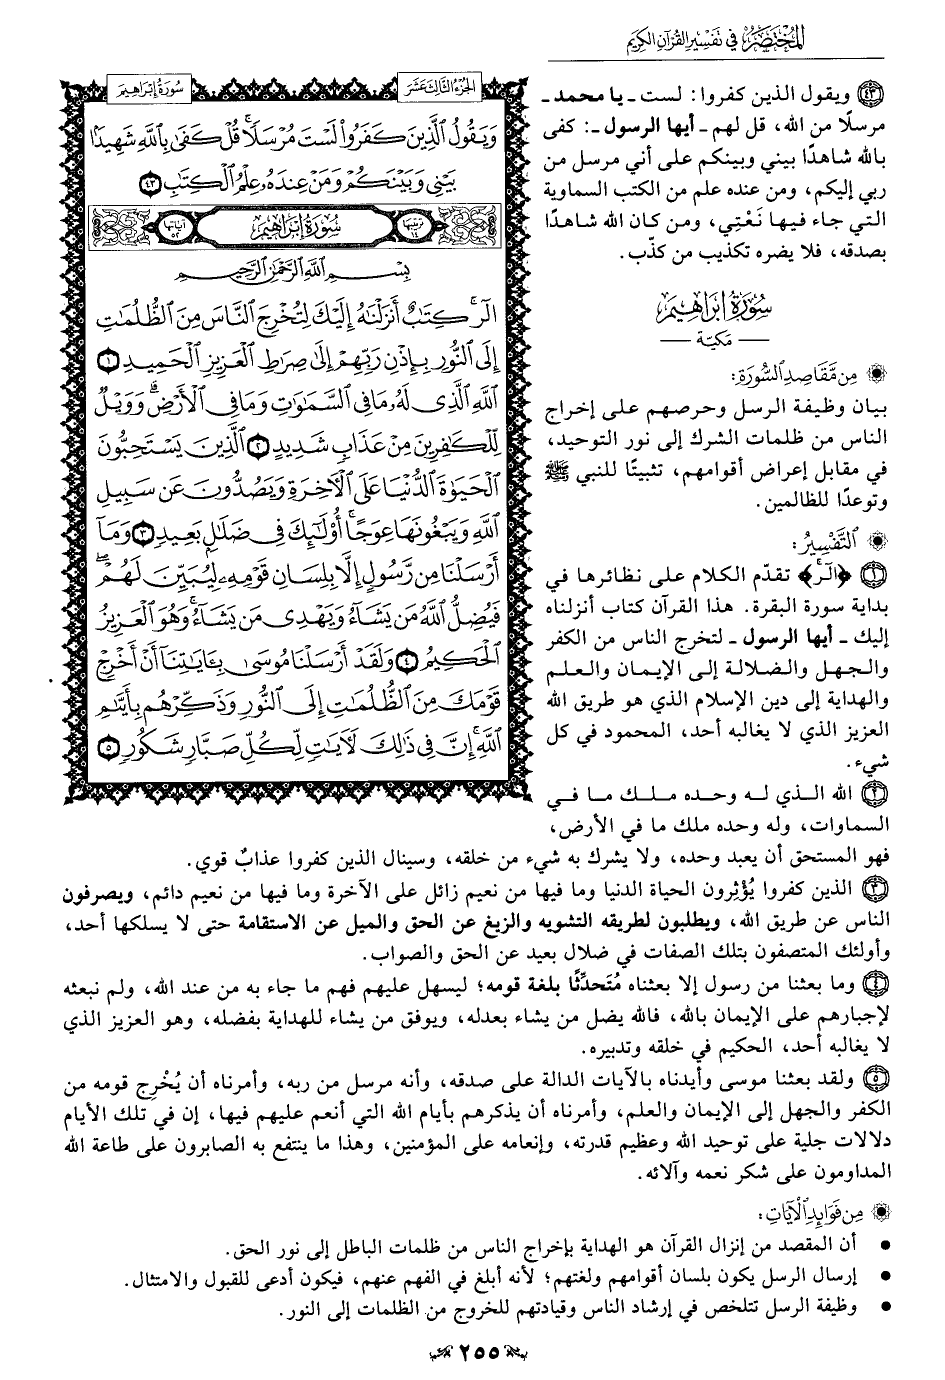 المختصر في تفسير القرآن الكريم
الجزء الثالث عشر
سورة إبراهيم
وَيَقُولُ ٱلَّذِينَ كَفَرُواْ لَسۡتَ مُرۡسَلٗاۚ قُلۡ كَفَىٰ بِٱللَّهِ شَهِيدَۢا
بَيۡنِي وَبَيۡنَكُمۡ وَمَنۡ عِندَهُۥ عِلۡمُ ٱلۡكِتَٰبِ ٤٣
ترتيبها ١٤
سورة إبراهيم
آياتها ٥٢
بِسۡمِ ٱللَّهِ ٱلرَّحۡمَٰنِ ٱلرَّحِيمِ
الٓرۚ كِتَٰبٌ أَنزَلۡنَٰهُ إِلَيۡكَ لِتُخۡرِجَ ٱلنَّاسَ مِنَ ٱلظُّلُمَٰتِ
إِلَى ٱلنُّورِ بِإِذۡنِ رَبِّهِمۡ إِلَىٰ صِرَٰطِ ٱلۡعَزِيزِ ٱلۡحَمِيدِ ١
ٱللَّهِ ٱلَّذِي لَهُۥ مَا فِي ٱلسَّمَٰوَٰتِ وَمَا فِي ٱلۡأَرۡضِۗ وَوَيۡلٞ
لِّلۡكَٰفِرِينَ مِنۡ عَذَابٖ شَدِيدٍ ٢ ٱلَّذِينَ يَسۡتَحِبُّونَ
ٱلۡحَيَوٰةَ ٱلدُّنۡيَا عَلَى ٱلۡأٓخِرَةِ وَيَصُدُّونَ عَن سَبِيلِ
ٱللَّهِ وَيَبۡغُونَهَا عِوَجًاۚ أُوْلَٰٓئِكَ فِي ضَلَٰلِۭ بَعِيدٖ ٣ وَمَآ
أَرۡسَلۡنَا مِن رَّسُولٍ إِلَّا بِلِسَانِ قَوۡمِهِۦ لِيُبَيِّنَ لَهُمۡۖ
فَيُضِلُّ ٱللَّهُ مَن يَشَآءُ وَيَهۡدِي مَن يَشَآءُۚ وَهُوَ ٱلۡعَزِيزُ
ٱلۡحَكِيمُ ٤ وَلَقَدۡ أَرۡسَلۡنَا مُوسَىٰ بِـَٔايَٰتِنَآ أَنۡ أَخۡرِجۡ
قَوۡمَكَ مِنَ ٱلظُّلُمَٰتِ إِلَى ٱلنُّورِ وَذَكِّرۡهُم بِأَيَّىٰمِ
ٱللَّهِۚ إِنَّ فِي ذَٰلِكَ لَأٓيَٰتٖ لِّكُلِّ صَبَّارٖ شَكُورٖ ٥
٤٣ ويقول الذين كفروا: لست ـ يا محمد ـ
مرسلًا من الله، قل لهم ـ أيها الرسول ـ: كفى
بالله شاهدًا بيني وبينكم على أني مرسل من
ربي إليكم، ومن عنده علم من الكتب السماوية
التي جاء فيها نَعْتِي، ومن كان الله شاهدًا
بصدقه، فلا يضره تكذيب من كذّب.
سورة إبراهيم
— مكية —
من مقاصد السورة:
بيان وظيفة الرسل وحرصهم على إخراج
الناس من ظلمات الشرك إلى نور التوحيد،
في مقابل إعراض أقوامهم، تثبيتًا للنبي ﷺ
وتوعدًا للظالمين.
التفسير:
١ ﴿الٓرۚ﴾ تقدّم الكلام على نظائرها في
بداية سورة البقرة. هذا القرآن كتاب أنزلناه
إليك ـ أيها الرسول ـ لتخرج الناس من الكفر
والجهل والضلالة إلى الإيمان والعلم
والهداية إلى دين الإسلام الذي هو طريق الله
العزيز الذي لا يغالبه أحد، المحمود في كل
شيء.
٢ الله الذي له وحده ملك ما في
السماوات، وله وحده ملك ما في الأرض،
فهو المستحق أن يعبد وحده، ولا يشرك به شيء من خلقه، وسينال الذين كفروا عذابٌ قوي.
٣ الذين كفروا يُؤْثِرون الحياة الدنيا وما فيها من نعيم زائل على الآخرة وما فيها من نعيم دائم، ويصرفون
الناس عن طريق الله، ويطلبون لطريقه التشويه والزيغ عن الحق والميل عن الاستقامة حتى لا يسلكها أحد،
وأولئك المتصفون بتلك الصفات في ضلال بعيد عن الحق والصواب.
٤ وما بعثنا من رسول إلا بعثناه مُتَحدِّثًا بلغة قومه؛ ليسهل عليهم فهم ما جاء به من عند الله، ولم نبعثه
لإجبارهم على الإيمان بالله، فالله يضل من يشاء بعدله، ويوفق من يشاء للهداية بفضله، وهو العزيز الذي
لا يغالبه أحد، الحكيم في خلقه وتدبيره.
٥ ولقد بعثنا موسى وأيدناه بالآيات الدالة على صدقه، وأنه مرسل من ربه، وأمرناه أن يُخْرِج قومه من
الكفر والجهل إلى الإيمان والعلم، وأمرناه أن يذكرهم بأيام الله التي أنعم عليهم فيها، إن في تلك الأيام
دلالات جلية على توحيد الله وعظيم قدرته، وإنعامه على المؤمنين، وهذا ما ينتفع به الصابرون على طاعة الله
المداومون على شكر نعمه وآلائه.
من فوائد الآيات:
● أن المقصد من إنزال القرآن هو الهداية بإخراج الناس من ظلمات الباطل إلى نور الحق.
● إرسال الرسل يكون بلسان أقوامهم ولغتهم؛ لأنه أبلغ في الفهم عنهم، فيكون أدعى للقبول والامتثال.
● وظيفة الرسل تتلخص في إرشاد الناس وقيادتهم للخروج من الظلمات إلى النور.
٢٥٥